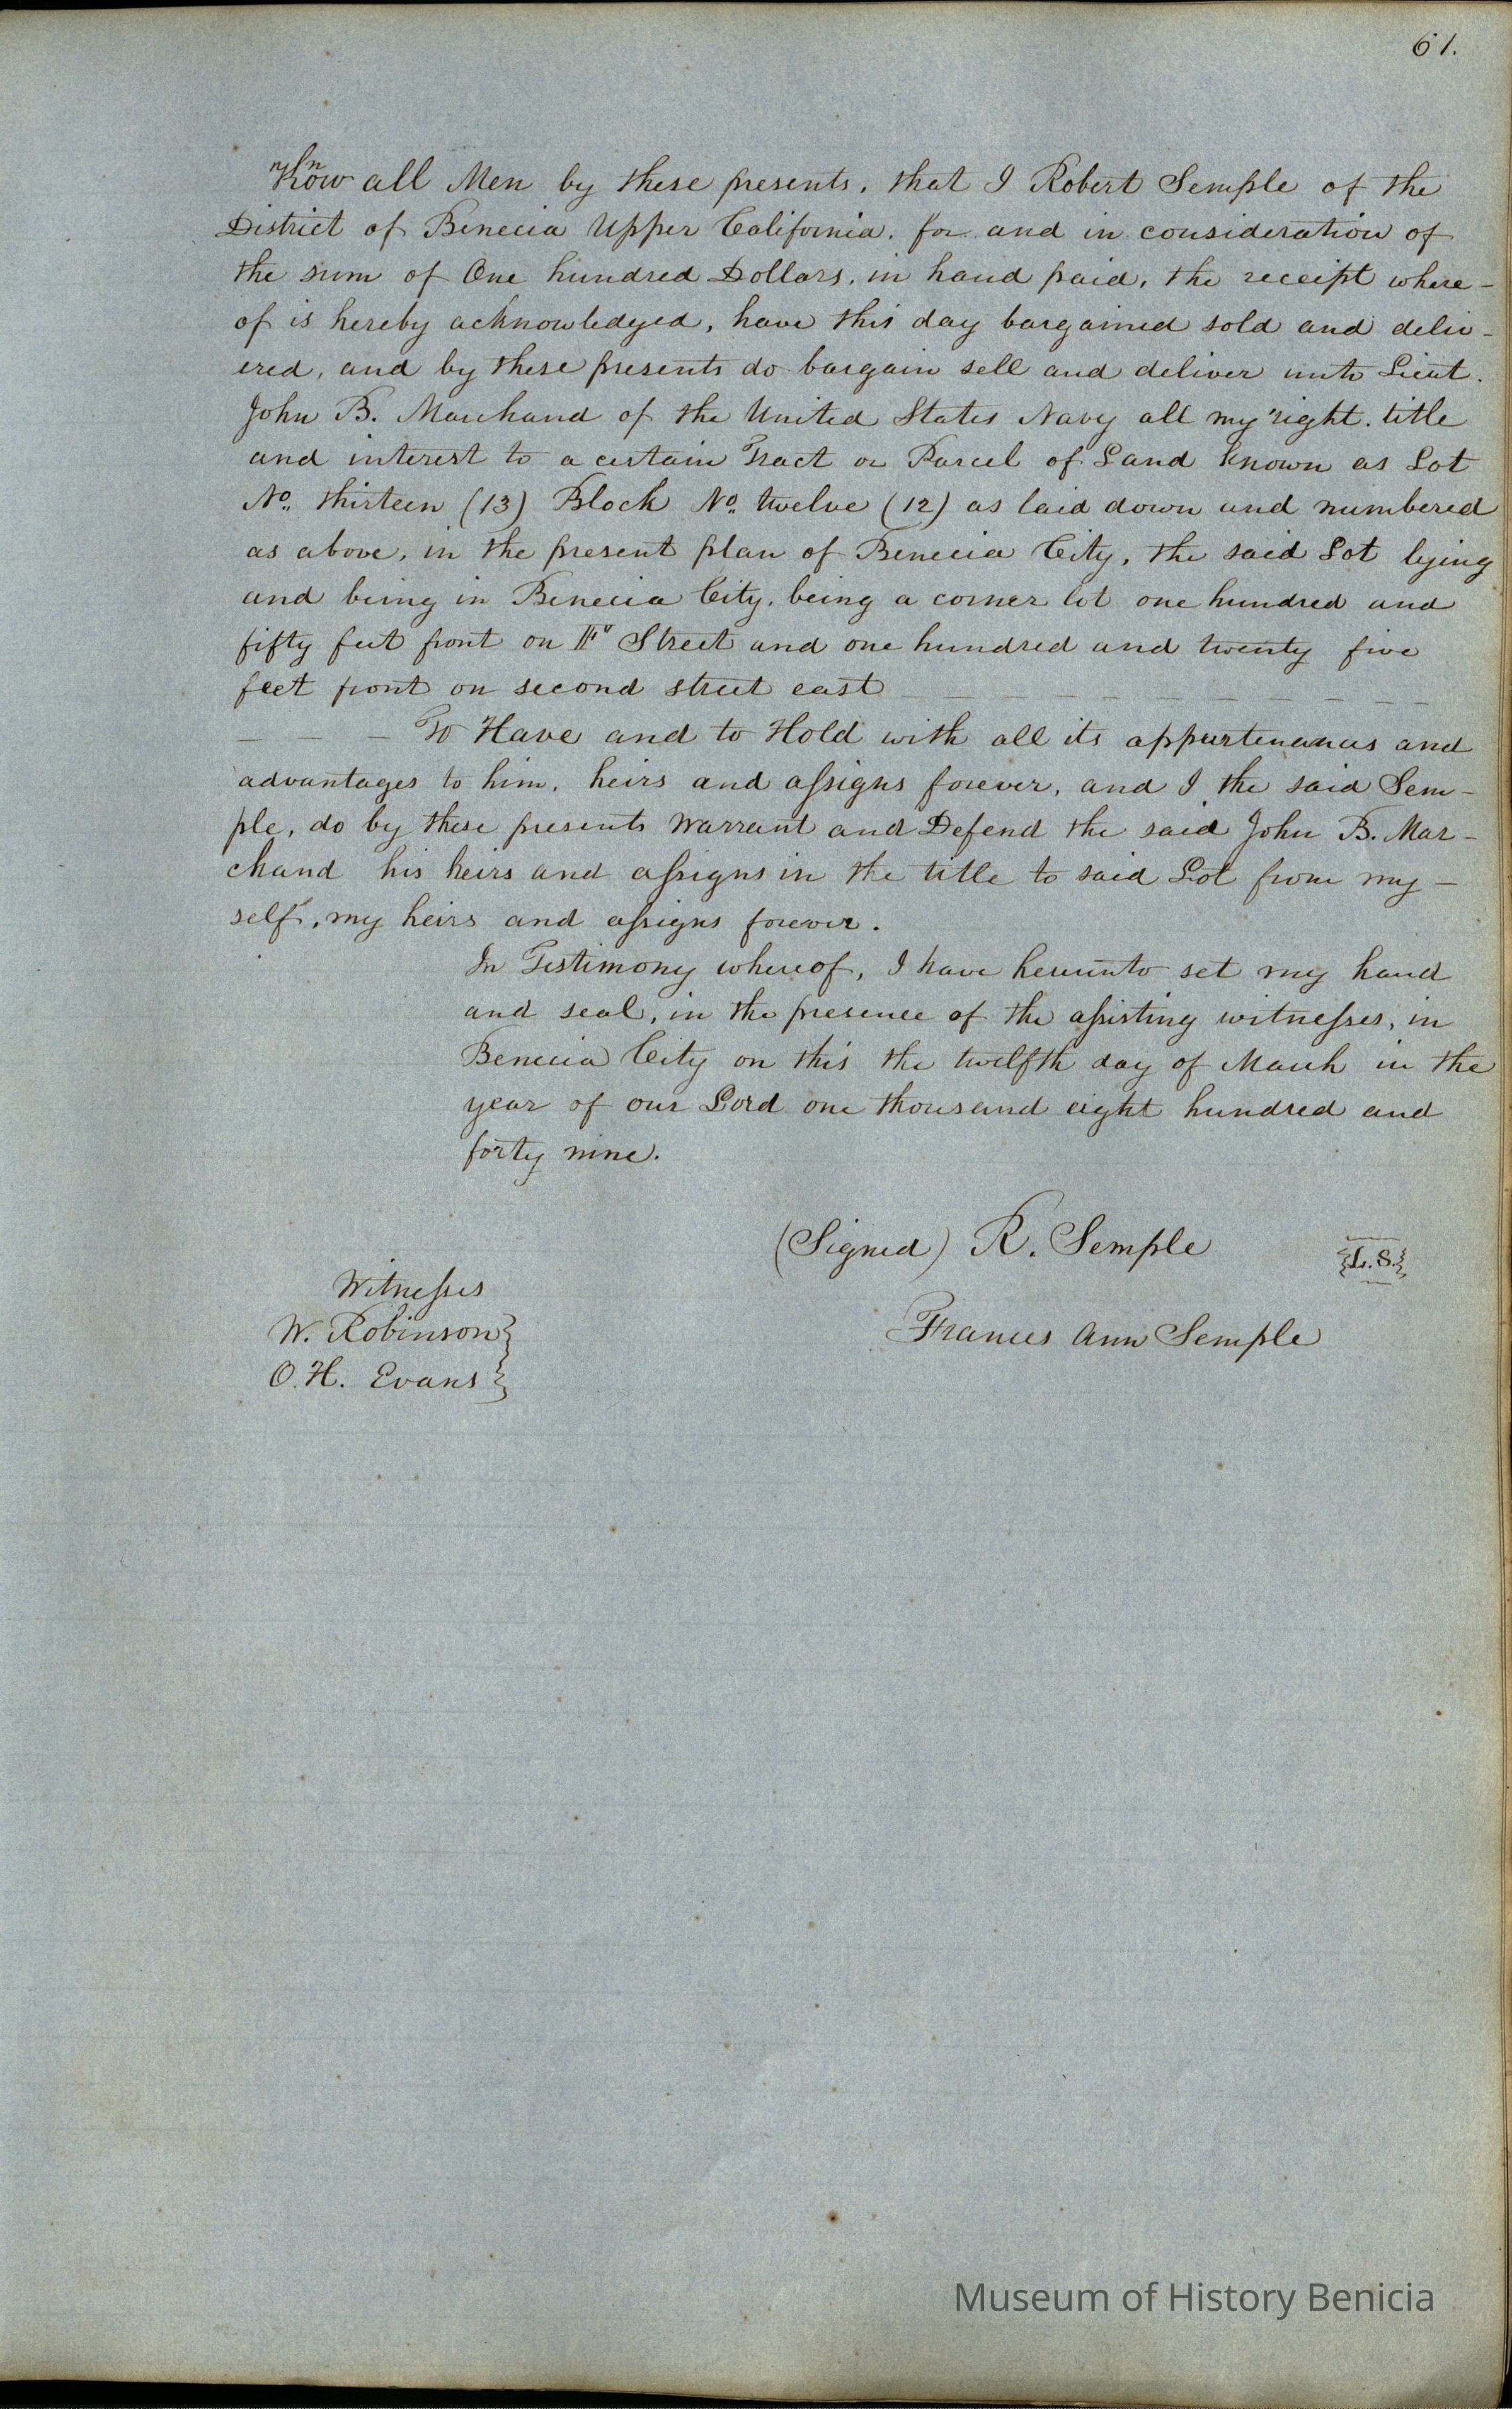 61.
Know all Men by these presents, that I Robert Semple of the
District of Benecia Upper California, for and in consideration of
the sum of One hundred Dollars, in hand paid, the receipt where-
of is hereby acknowledged, have this day bargained sold and deliv-
ered, and by these presents do bargain sell and deliver unto Lieut.
John B. Marchand of the United States Navy all my right, title
and interest to a certain Tract or Parcel of Land known as Lot
No. thirteen (13) Block No. twelve (12) as laid down and numbered
as above, in the present plan of Benecia City, the said Lot lying
and being in Benecia City, being a corner lot one hundred and
fifty feet front on Street and one hundred and twenty five
feet front on second street east — — — — — — — —
— — — To Have and to Hold with all its appurtenances and
advantages to him, heirs and assigns forever, and I the said Sem-
ple, do by these presents Warrant and Defend the said John B. Mar-
chand his heirs and assigns in the title to said Lot from my-
self, my heirs and assigns forever.
In Testimony whereof, I have hereunto set my hand
and seal, in the presence of the assisting witnesses, in
Benecia City on this the twelfth day of March in the
year of our Lord one thousand eight hundred and
forty nine.
(Signed) R. Semple {L.S.}
Witnesses
W. Robinson }
Frances Ann Semple
O. H. Evans }
Museum of History Benicia